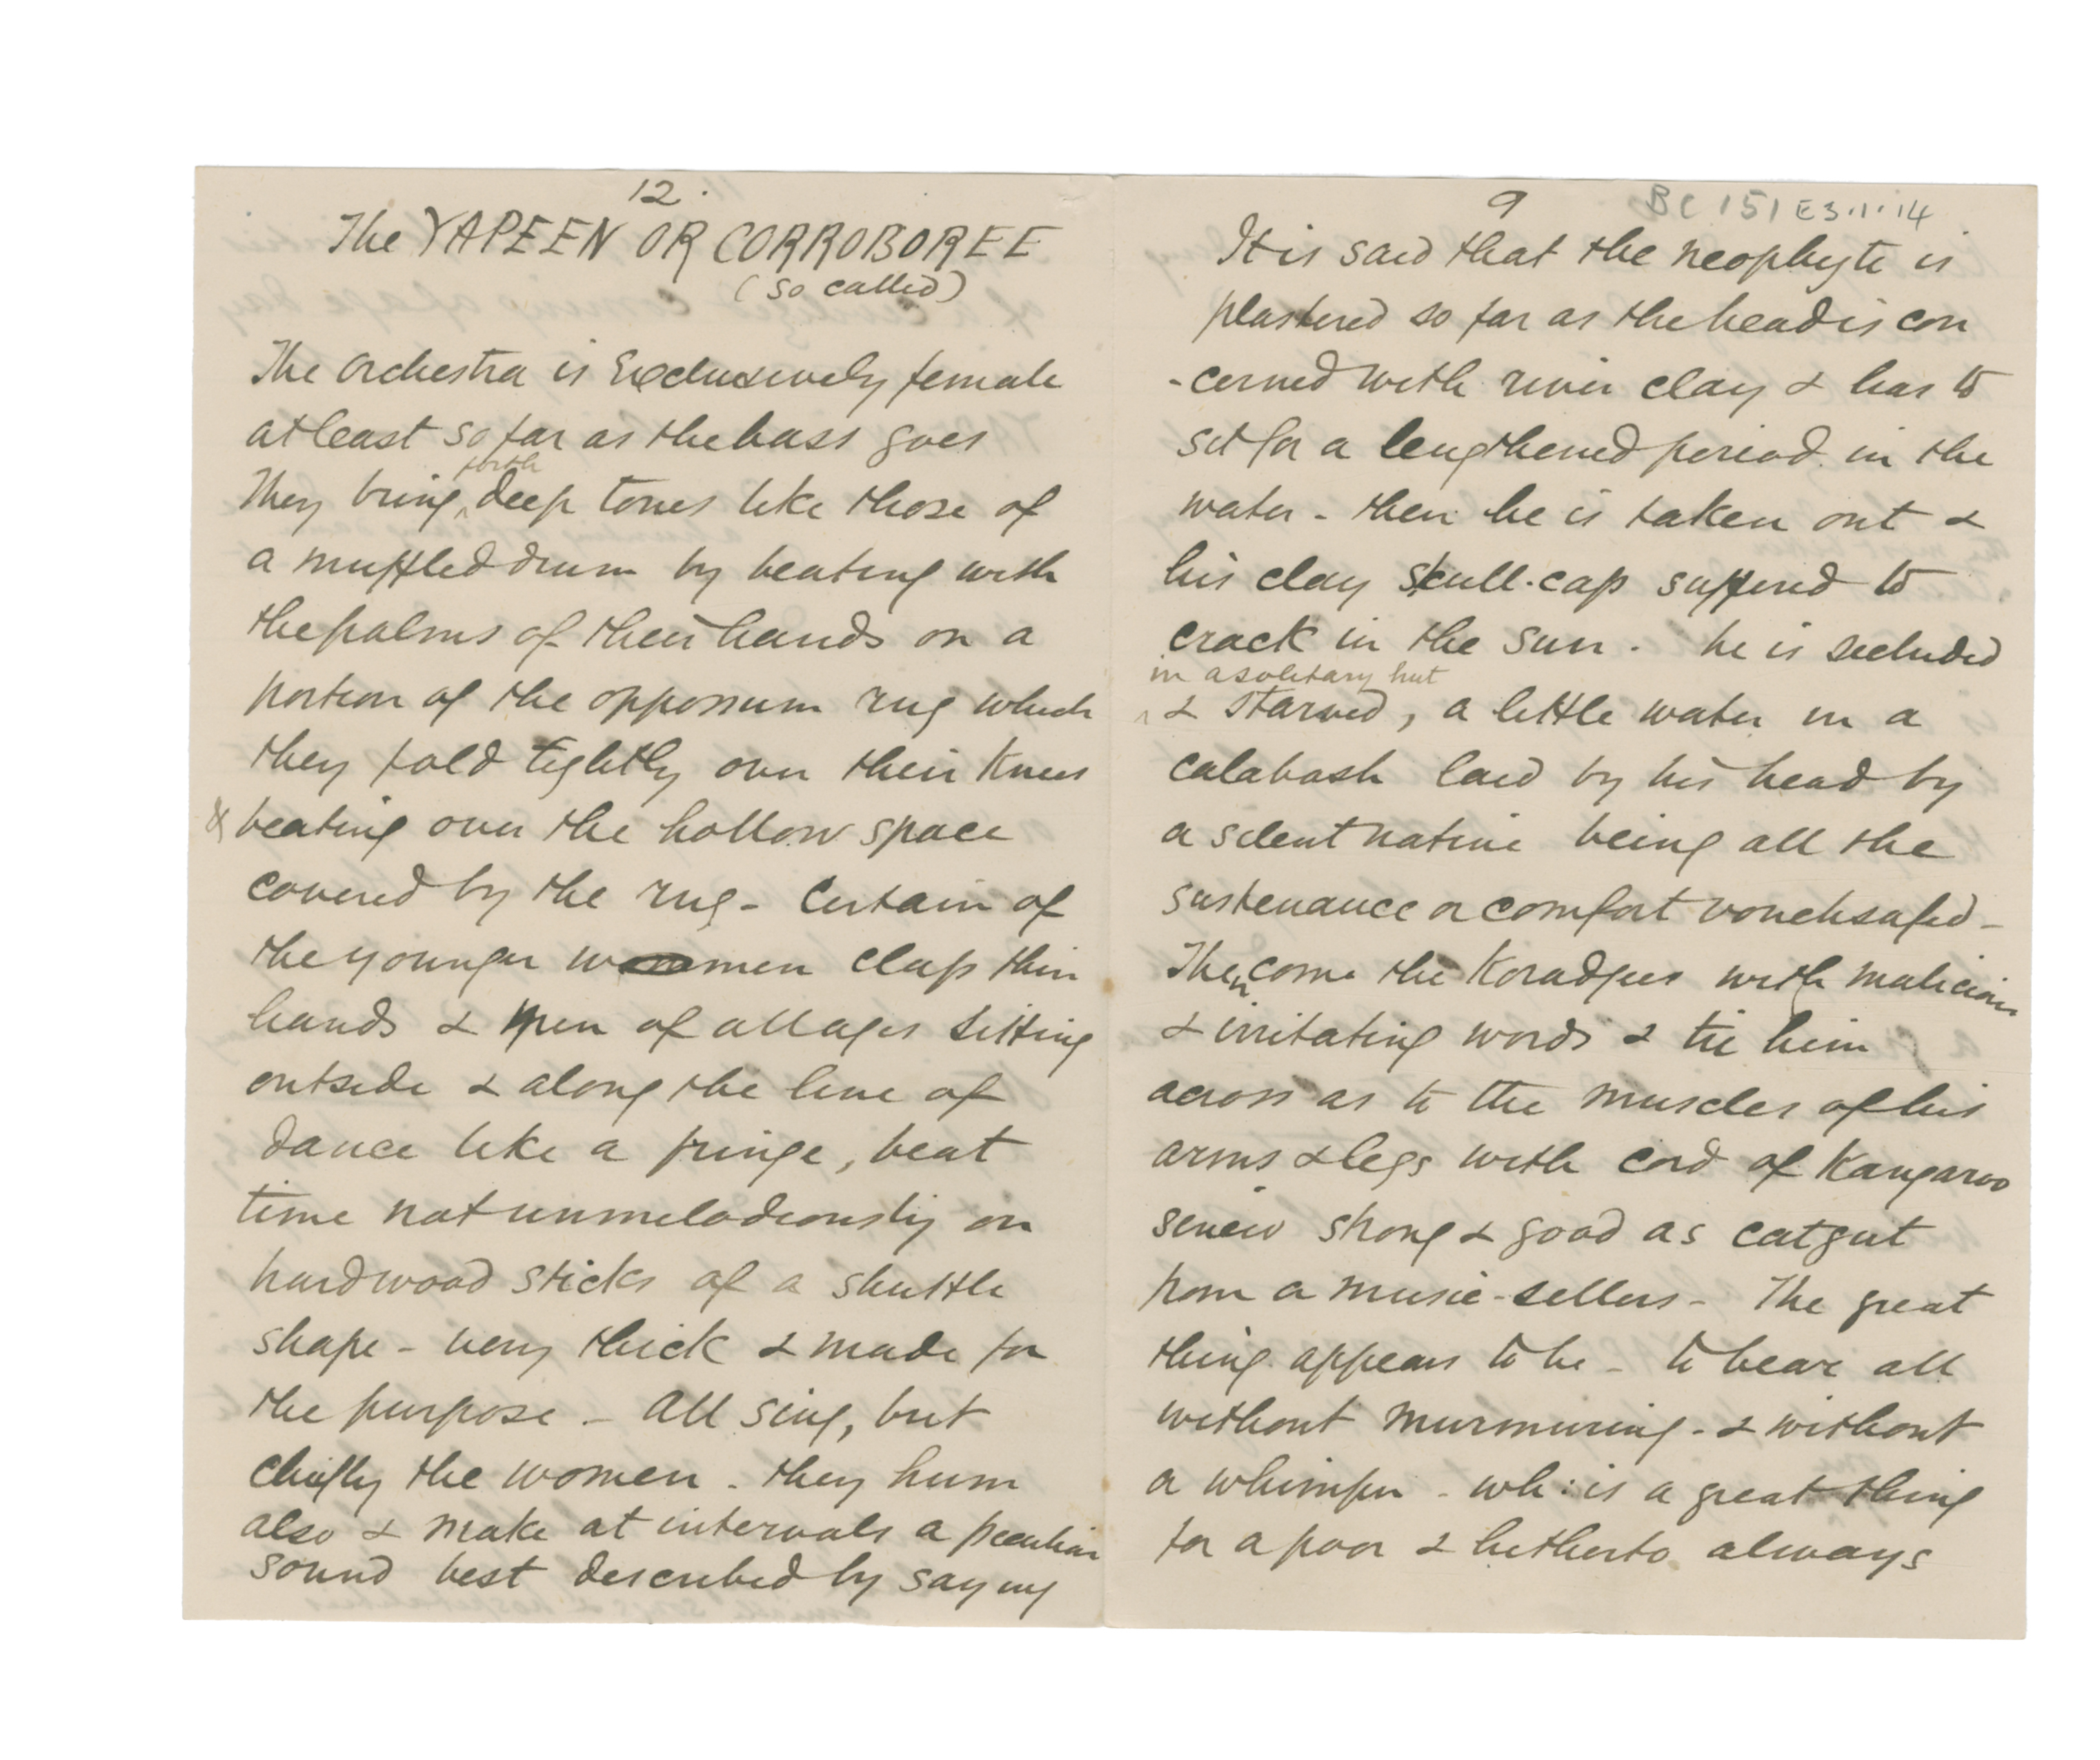 12.
The YAPEEN OR CORROBOREE
(so called)
The Orchestra is Exclusively female
at least so far as the bass goes
forth
They bring deep tones like those of
a muffled drum by beating with
the palms of their hands on a
portion of the oppossum rug which
they fold tightly over their Knees
& beating over the hollow space
covered by the rug - Certain of
the younger women clap their
hands & Men of all ages sitting
outside & along the line of
dance like a fringe, beat
time not unmelodiously on
hardwood sticks of a shuttle
shape - very thick & made for
the purpose - All sing, but
chiefly the women - they hum
also & make at intervals a peculiar
sound best described by saying
9
BC 151 E3.1.14
It is said that the neophyte is
plastered so far as the head is con
-cerned with river clay & has to
sit for a lengthened period in the
water - then he is taken out &
his clay skull-cap suffered to
crack in the sun. he is secluded
in a solitary hut
& starved, a little water in a
calabash laid by his head by
a silent native being all the
sustenance or comfort vouchsafed -
Then come the Koradjees with malicious
& irritating words & tie him
across as to the muscles of his
arms & legs with cord of Kangaroo
sinew strong & good as catgut
from a music-sellers - The great
thing appears to be - to bear all
without murmuring - & without
a whimper - wh: is a great thing
for a poor & hitherto always